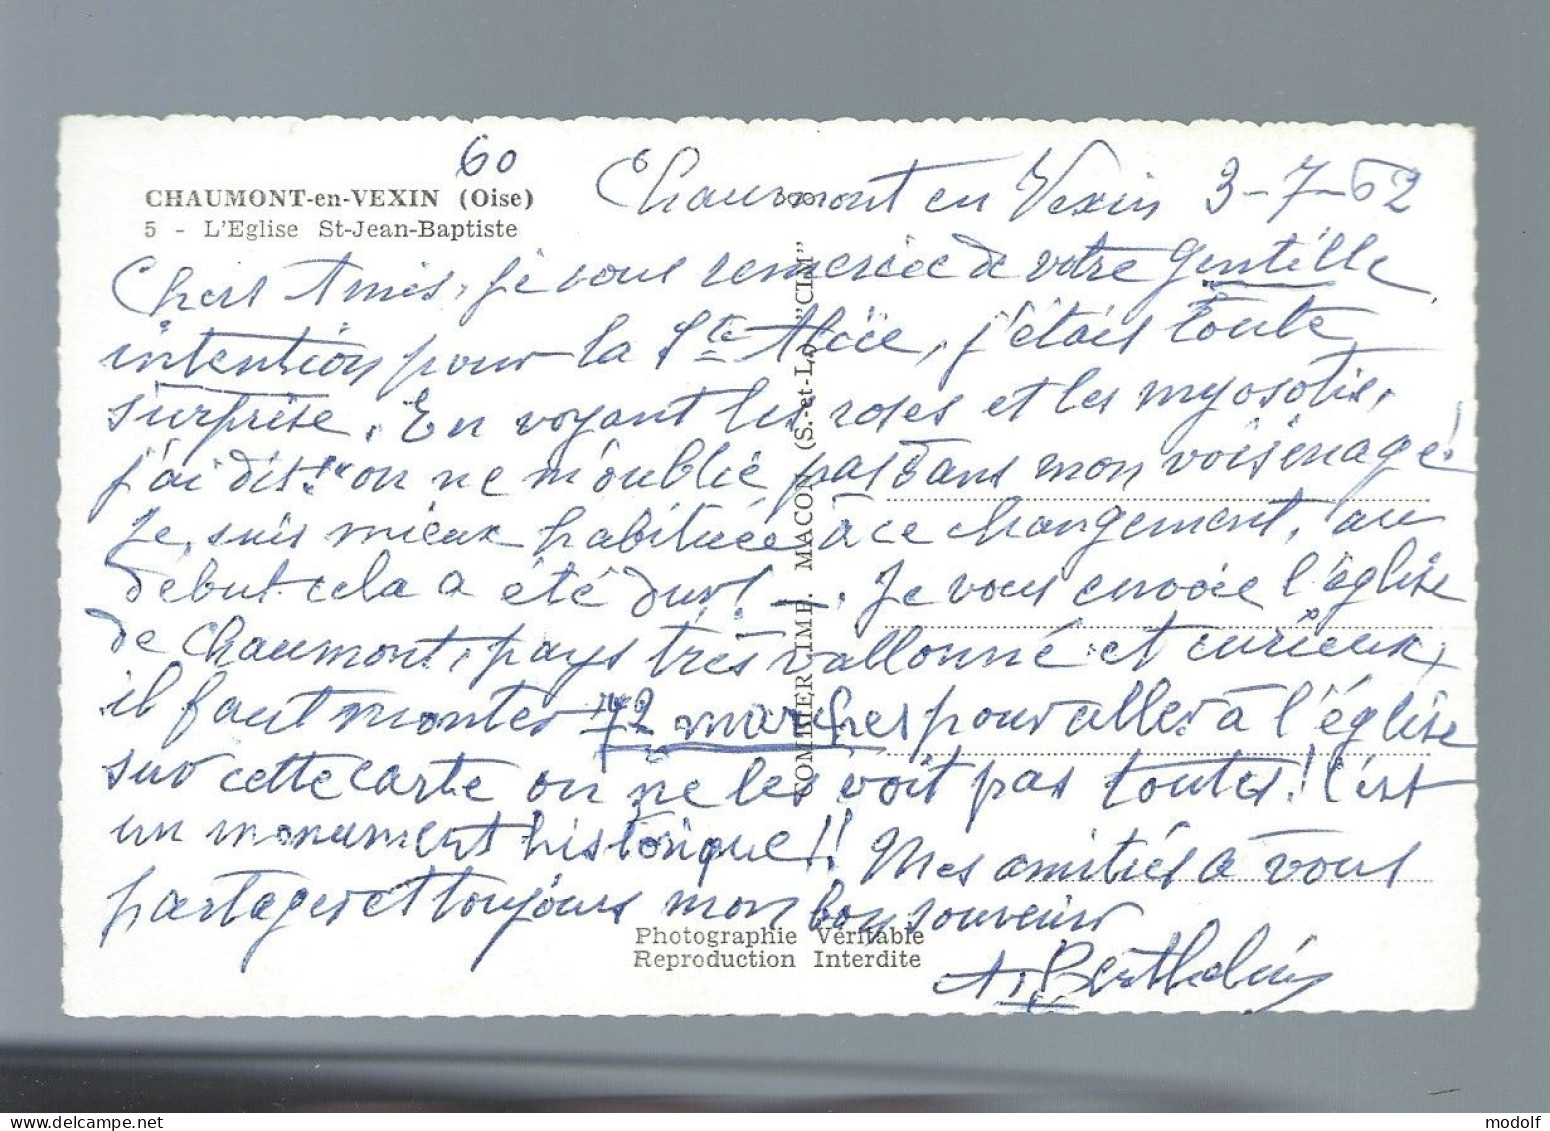 60
CHAUMONT-en-VEXIN (Oise)
5 - L'Eglise St-Jean-Baptiste
Chaumont en Vexin 3-7-62
Chers Amis, je vous remerciée de votre gentille
intention pour la Ste Alice, j'étais toute
surprise. En voyant les roses et les myosotis,
j'ai dit! "on ne m'oublie pas dans mon voisinage!
Je suis mieux habituée à ce changement, au
début cela a été dur! —. Je vous envoie l'église
de Chaumont, pays très vallonné et curieux,
il faut monter 72 marches pour aller à l'église
sur cette carte on ne les voit pas toutes! C'est
un monument historique!! Mes amitiés à vous
partager et toujours mon bon souvenir
A. Berthelin
COMBIER IMP. MACON (S.-et-L.) "CIM"
Photographie Véritable
Reproduction Interdite
modolf